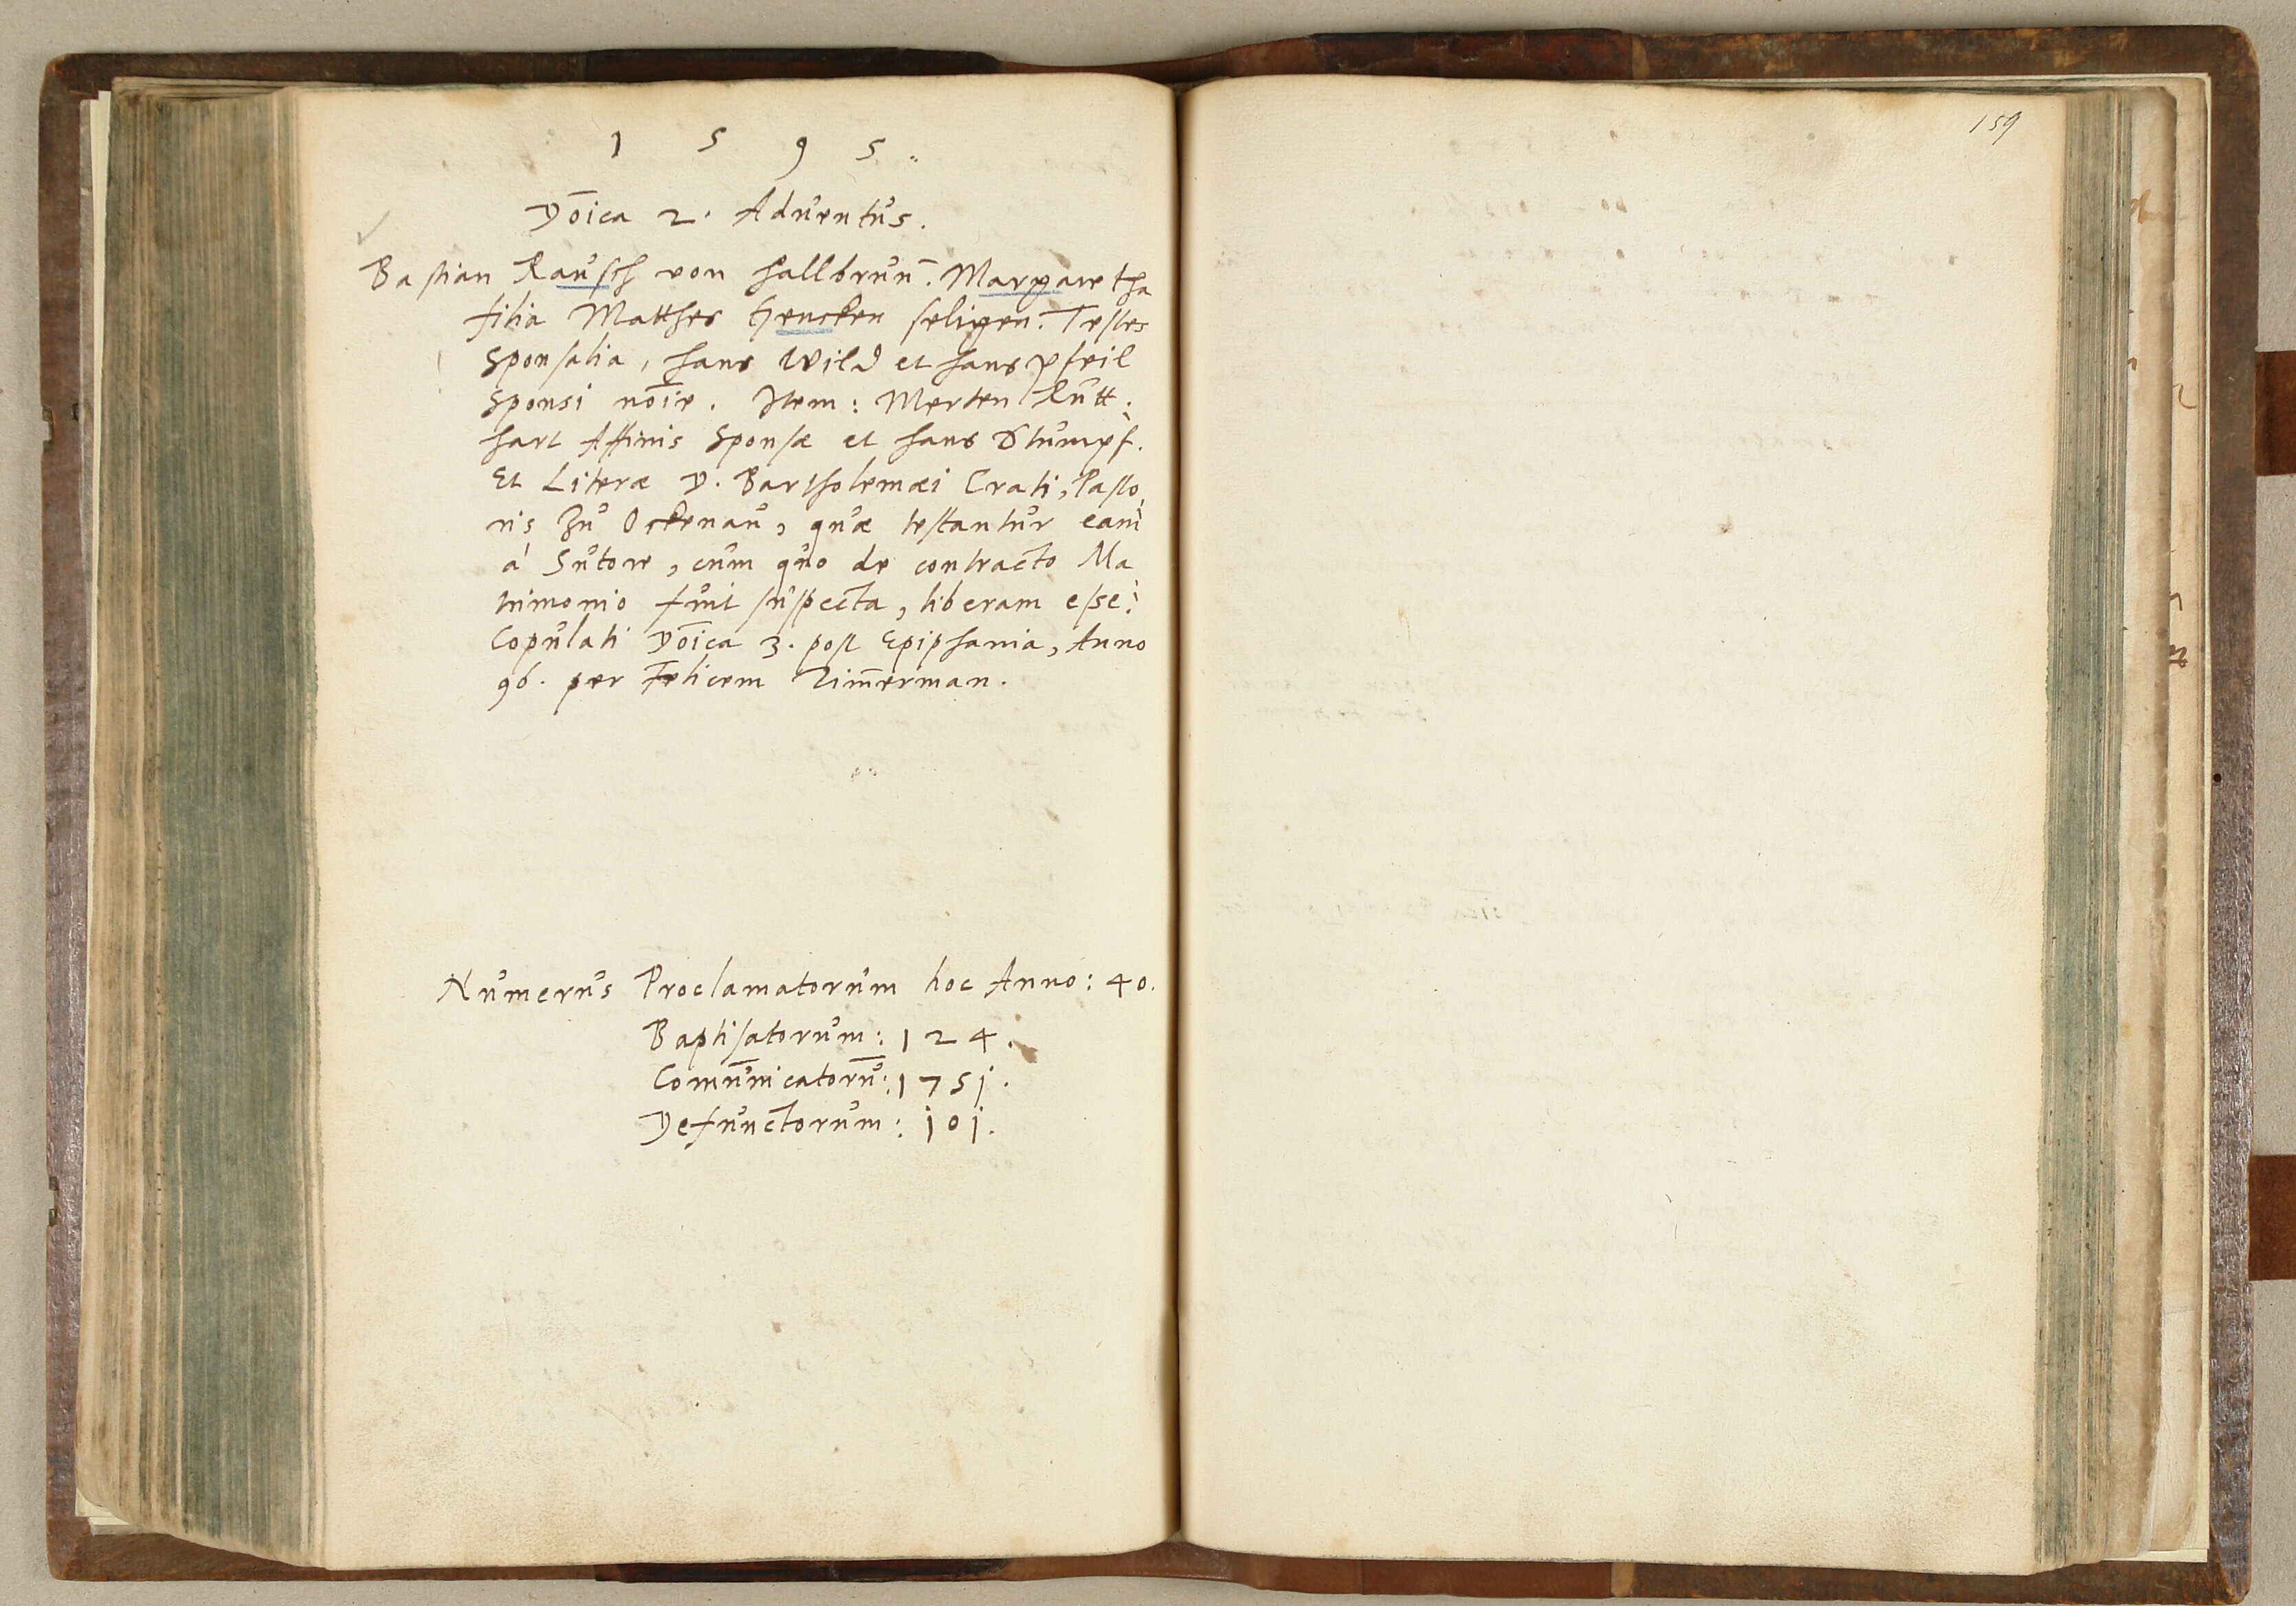 1 5 9 5.
Dōica 2. Aduentus.
Bastian Rausch von Hallbrun̄. Margaretha
filia Matthes Hencken seligen. Testes
Sponsalia, Hans Wild et Hans Pfeil
Sponsi nōie. Item: Merten Rütt:
hart Affinis Sponsæ et Hans Stumpf.
Et Literæ D. Bartholemæi Crati, Pasto,
ris Zu Ockenau, quæ testantur eam
à Sutore, cum quo de contracto Ma
trimonio fuit suspecta, liberam esse:
Copulati Dōica 3. post Epiphania, Anno
96. per Felicem Zim̄erman.
Numerus Proclamatorum hoc Anno: 40.
Baptisatorum: 124.
Com̄unicatorū: 1751.
Defunctorum: 101.
159